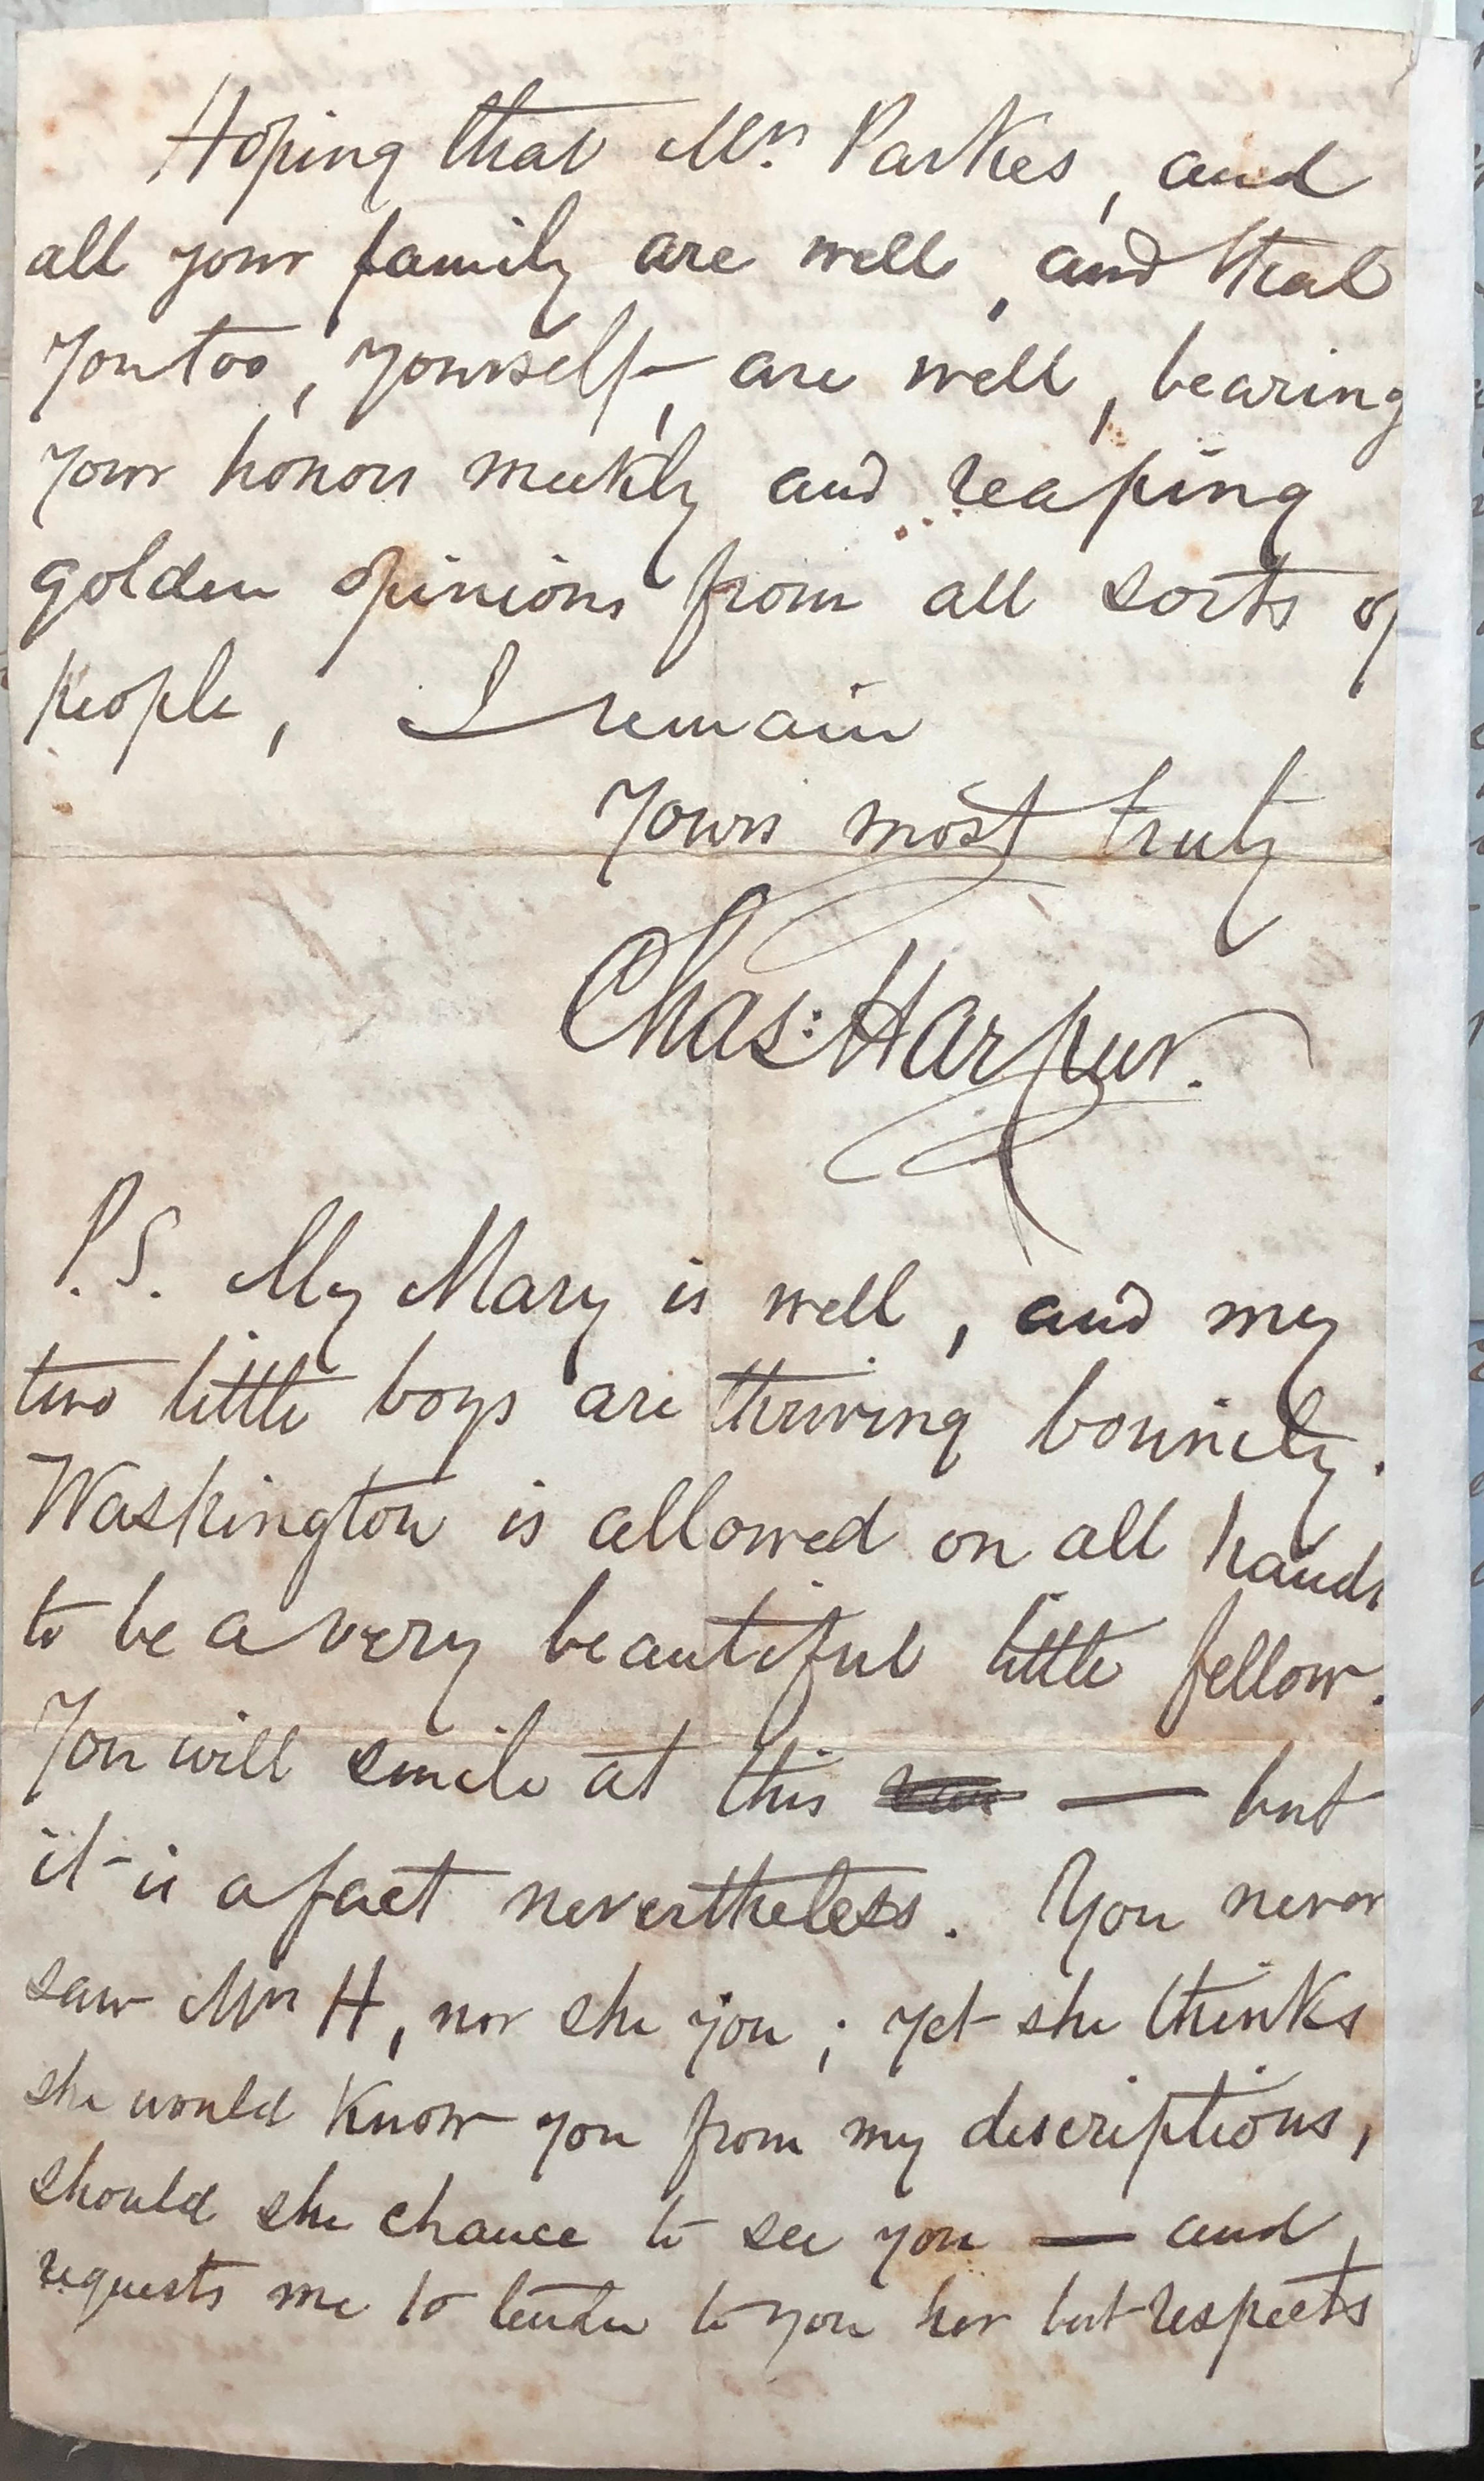 Hoping that Mrs Parkes, and
all your family are well, and that
you too, yourself, are well, bearing
your honors meekly and reaping
golden opinions from all sorts of
people, I remain
Yours most truly
Chas: Harpur.
P.S. My Mary is well, and my
two little boys are thriving bonnily.
Washington is allowed on all hands
to be a very beautiful little fellow.
You will smile at this — but
it is a fact nevertheless. You never
saw Mrs H, nor she you; yet she thinks
she would know you from my descriptions,
should she chance to see you — and
requests me to tender to you her best respects